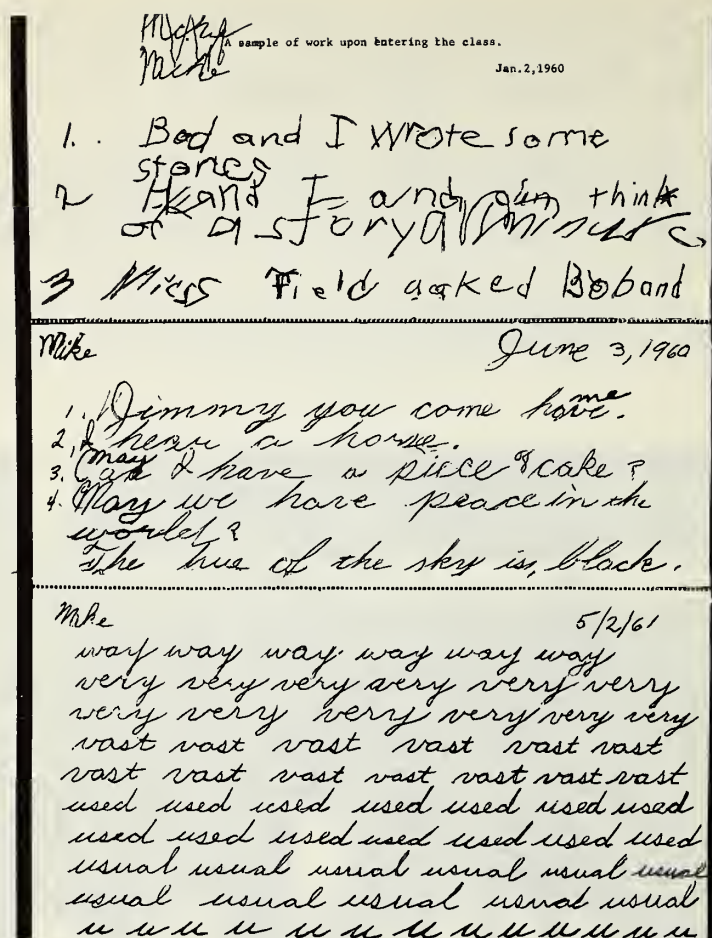 A sample of work upon entering the class.
Mike
Jan.2,1960
1. Bod and I wrote some
stories
2 He and I and think
of a story all minute
3 Miss Field acked Bob and
Mike June 3, 1960
1. Jimmy you come home.
2. I hear a horse.
3. May I have a piece of cake?
4. May we have peace in the
world?
The hue of the sky is, black.
Mike 5/2/61
way way way way way way
very very very very very very
very very very very very very
vast vast vast vast vast vast
vast vast vast vast vast vast vast
used used used used used used used
used used used used used used used
usual usual usual usual usual usual
usual usual usual usual usual
u u u u u u u u u u u u u u